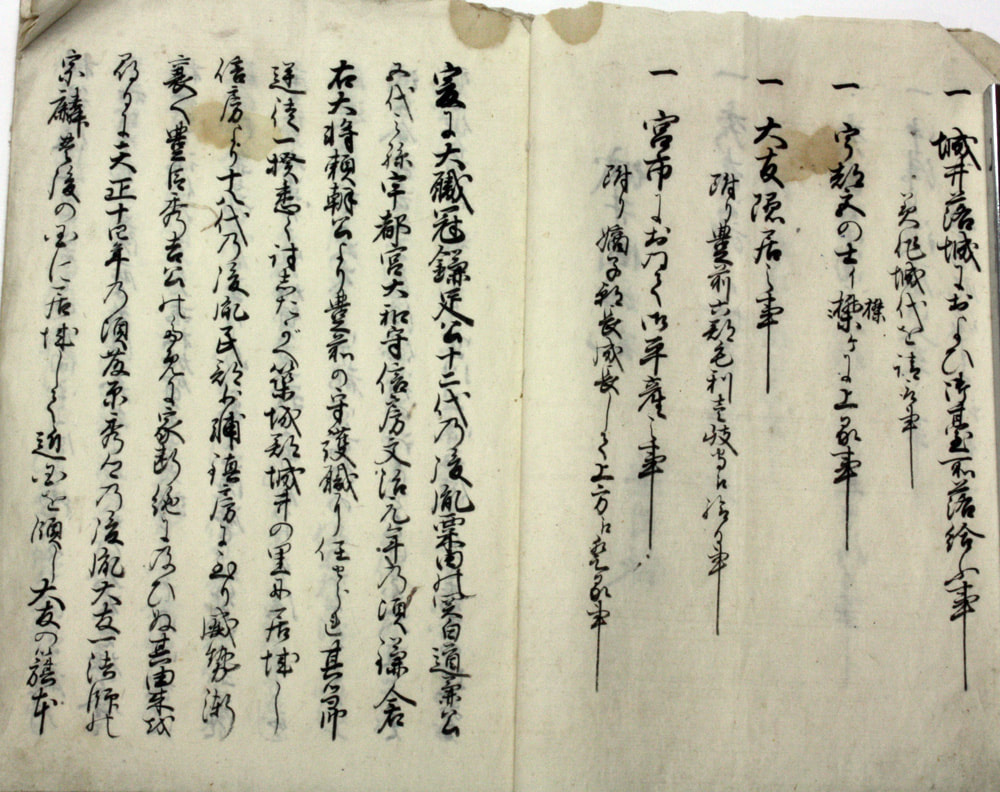 一 城井落城におよひ御臺所落給ふ事
城代を請取事
一 宇都宮の士
上る事
一 大友隠居之事
附り豊前六郡毛利壱岐守に給る事
一 宮市におゐて御平産之事
附り嫡子朝長成長して上方に登る事
爰に大職冠鎌足公十二代乃後胤粟田の関白道兼公
五代之孫宇都宮大和守信房文治元年乃頃鎌倉
右大将頼朝公より豊前の守護職に任せられ其節
逆徒一揆悉く討したがへ築城郡城井の里に居城し
信房より十八代乃後胤民部少補鎮房に至り威勢漸
衰へ豊臣秀吉公のために家断絶に及ひぬ其由来を
尋るに天正十四年乃頃藤原秀郷乃後胤大友一法師の
宗麟豊後の国に居城して近国を領し大友の籏本